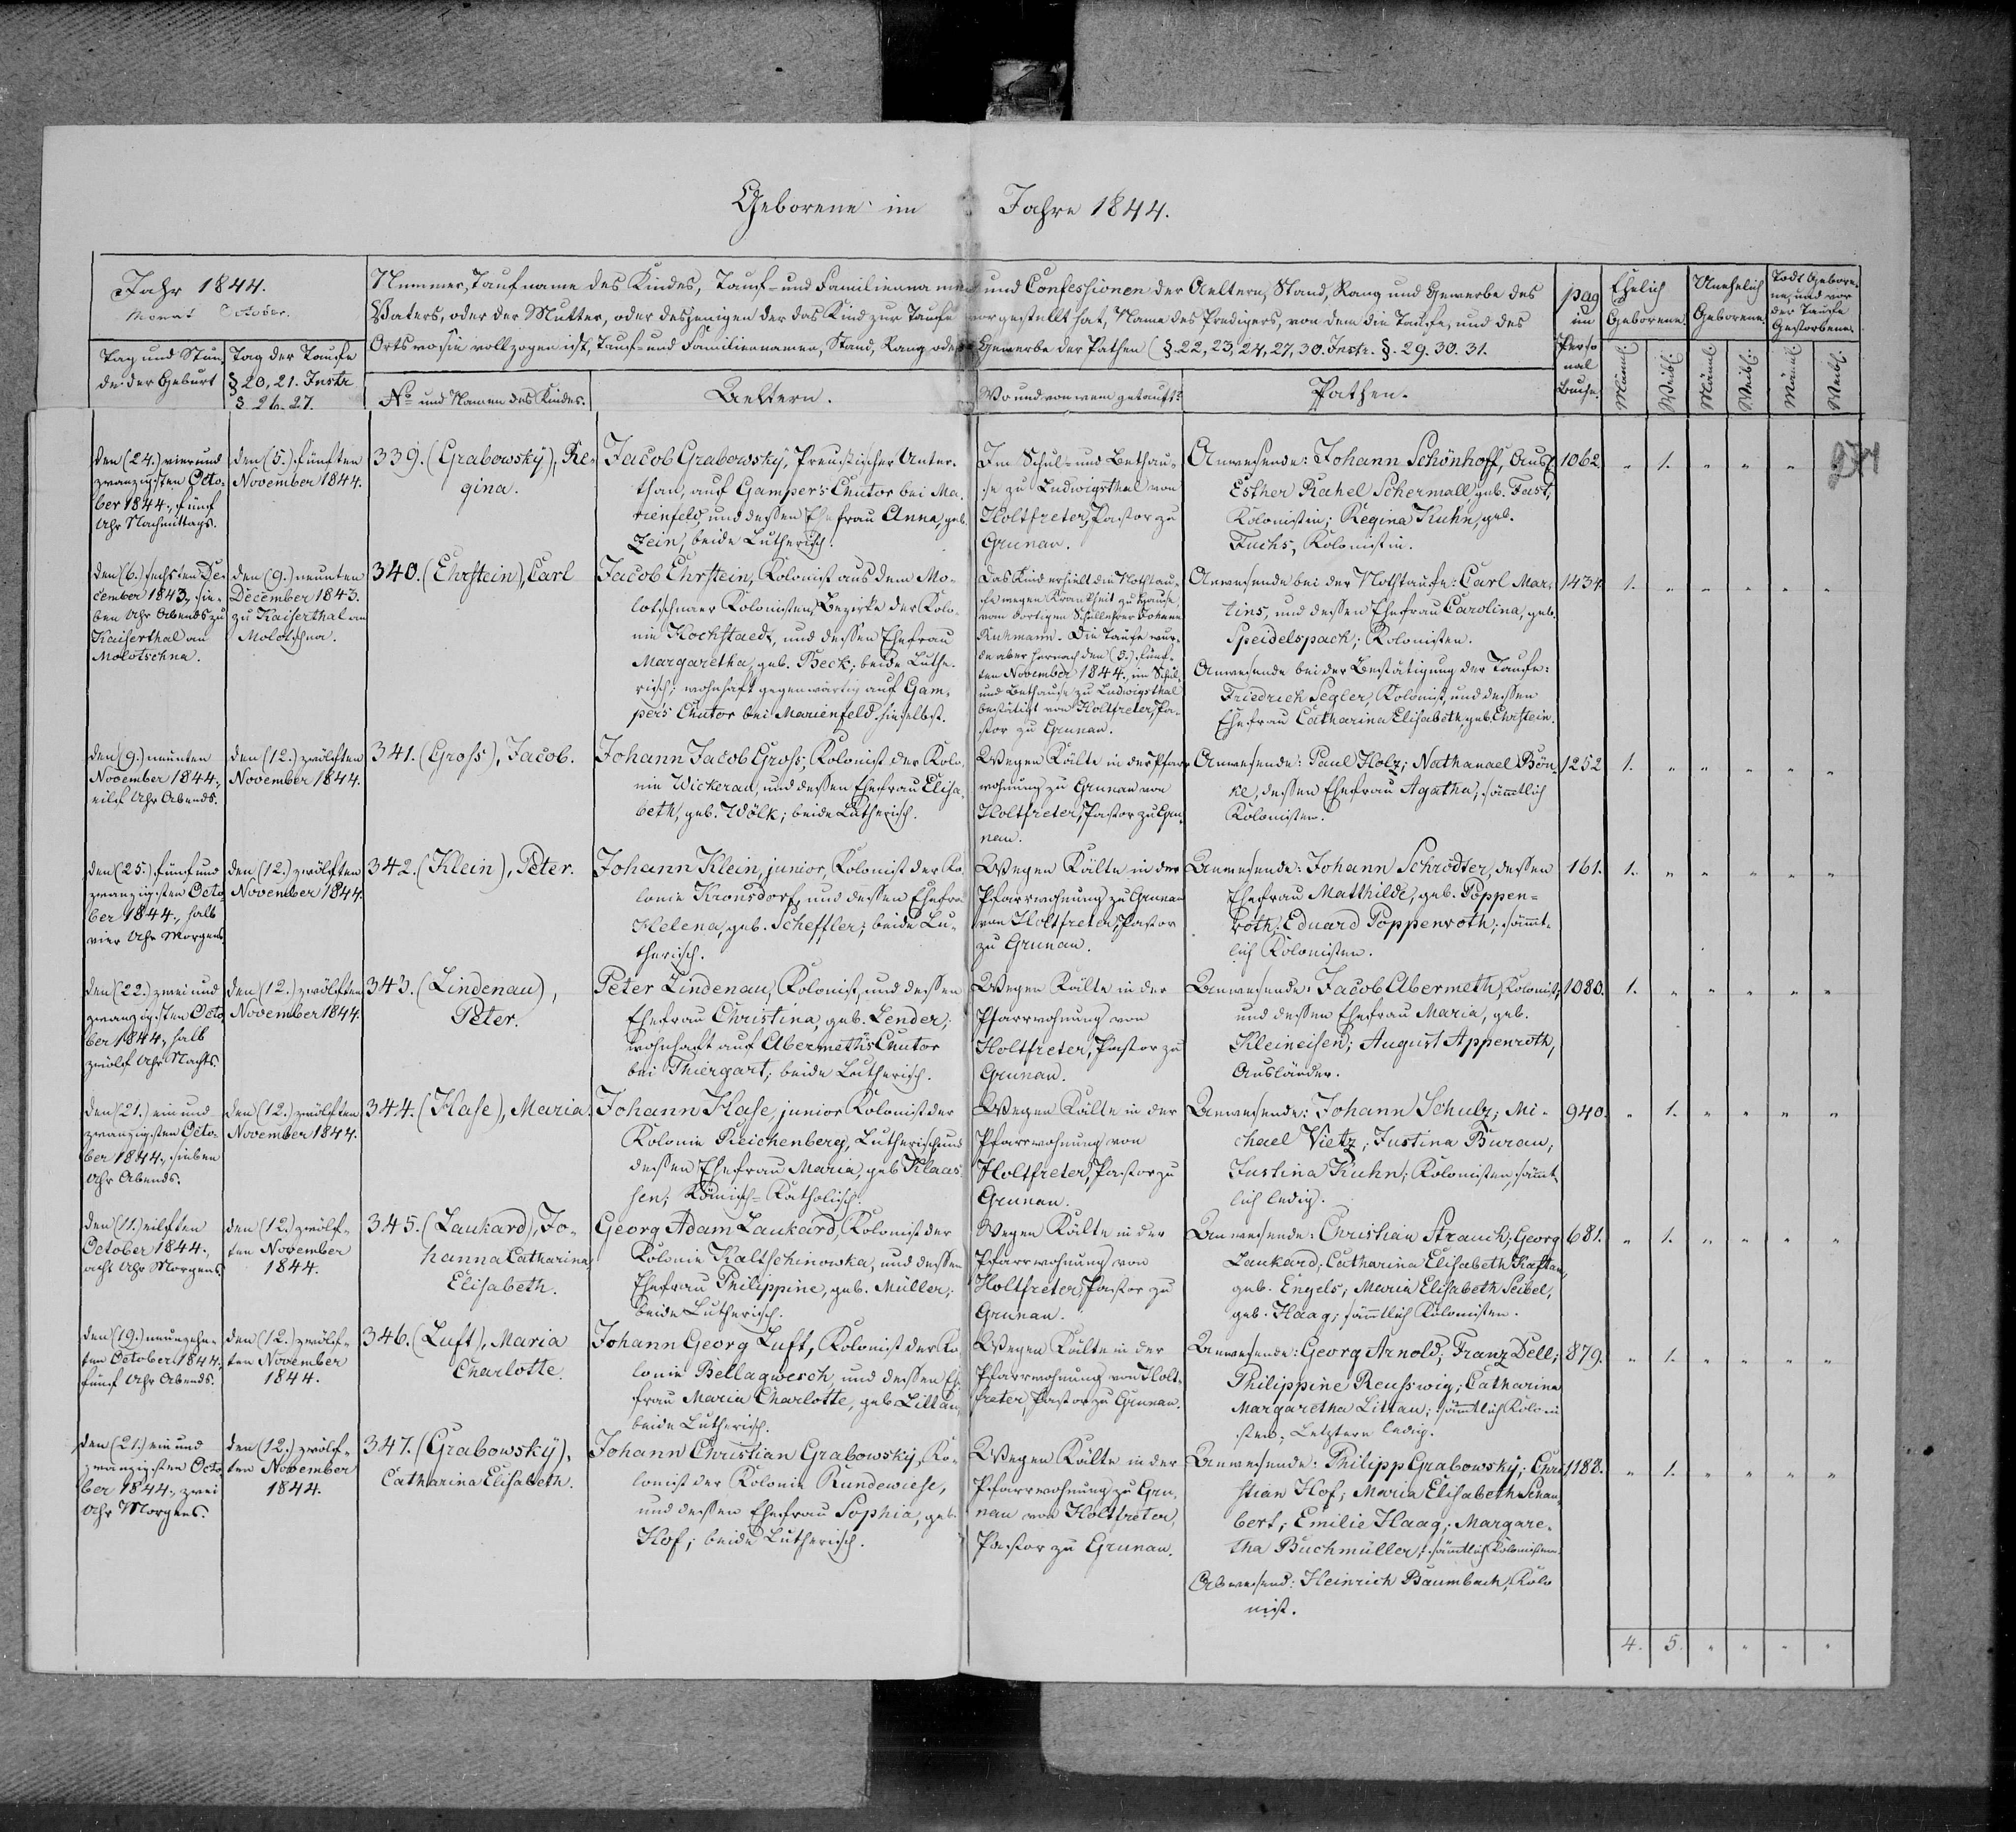 Geborene im Jahre 1844.
Jahr 1844.
Monat October.
Nummer, Taufname des Kindes, Tauf- und Familiennamen und Confessionen der Aeltern, Stand, Rang und Gewerbe des
Vaters, oder der Mutter, oder desjenigen der das Kind zur Taufe vorgestellt hat, Name des Predigers, von dem die Taufe, und des
Orts wo sie vollzogen ist, Tauf- und Familiennamen, Stand, Rang oder Gewerbe der Pathen (§. 22, 23, 24, 27, 30. Instr. §. 29. 30. 31.
Tag und Stun-
de der Geburt
Tag der Taufe
§ 20, 21. Instr
§. 26. 27.
No und Namen des Kindes.
Aeltern.
Wo und von wem getauft?
Pathen.
pag
im
Perso
nal
Buche.
Ehelich
Geborene.
Unehelich
Geborene.
Todt Gebore-
ne, und vor
der Taufe
Gestorbene.
Männl.
Weibl.
Männl.
Weibl.
Männl.
Weibl.
den (24.) vier und
zwanzigsten Octo-
ber 1844., fünf
Uhr Nachmittags.
den (5.) fünften
November 1844.
339. (Grabowsky), Re-
gina.
Jacob Grabowsky, Preußischer Unter-
than, auf Gampers Chutor bei Ma-
rienfeld, und dessen Ehefrau Anna, geb.
Zein, beide Lutherisch.
Im Schul- und Bethau-
se zu Ludwigsthal von
Holtfreter, Pastor zu
Grunau.
Anwesende: Johann Schönhoff, Ausl.
Esther Rahel Schermall, geb. Fast,
Kolonistin; Regina Kuhn, geb.
Fuchs, Kolonistin.
1062. " 1. " " "
274
den (6.) sechsten De-
cember 1843., sie-
ben Uhr Abends zu
Kaiserthal an
Molotschna.
den (9.) neunten
December 1843.
zu Kaiserthal an
Molotschna.
340. (Ehrstein), Carl
Jacob Ehrstein, Kolonist aus dem Mo-
lotschnaer Kolonisten Bezirke der Kolo-
nie Hochstaedt, und dessen Ehefrau
Margaretha, geb. Beck; beide Luthe-
risch; wohnhaft gegenwärtig auf Gam-
pers Chutor bei Marienfeld hieselbst.
Das Kind erhielt die Nothtau-
fe wegen Krankheit zu Hause,
vom dortigen Schullehrer Johann
Ruhmann. Die Taufe wur-
de aber hernach den (5.) fünf-
ten November 1844., im Schul-
und Bethause zu Ludwigsthal
bestätigt von Holtfreter, Pa-
stor zu Grunau.
Anwesende bei der Nothtaufe: Carl Mar-
tins, und dessen Ehefrau Carolina, geb.
Speidelspach; Kolonisten.
Anwesende bei der Bestätigung der Taufe:
Friedrich Segler, Kolonist, und dessen
Ehefrau Catharina Elisabeth, geb. Ehrstein.
1434. 1. " " " " "
den (9.) neunten
November 1844.,
eilf Uhr Abends.
den (12.) zwölften
November 1844.
341. (Groß), Jacob.
Johann Jacob Groß, Kolonist der Kolo-
nie Wickerau, und dessen Ehefrau Elisa-
beth, geb. Wölk; beide Lutherisch.
Wegen Kälte in der Pfar-
wohnung zu Grunau von
Holtfreter, Pastor zu Gru-
nau.
Anwesende: Paul Holz; Nathanael Bön-
ke, dessen Ehefrau Agatha; sämmtlich
Kolonisten.
1252 1. " " " " "
den (25.) fünf und
zwanzigsten Octo-
ber 1844., halb
vier Uhr Morgens.
den (12.) zwölften
November 1844.
342. (Klein), Peter.
Johann Klein, junior, Kolonist der Ko-
lonie Kronsdorf, und dessen Ehefrau
Helena, geb. Scheffler; beide Lu-
therisch.
Wegen Kälte in der
Pfarrwohnung zu Grunau
von Holtfreter, Pastor
zu Grunau.
Anwesende: Johann Schrödter, dessen
Ehefrau Matthilde, geb. Poppen-
roth; Eduard Poppenroth; sämmt-
lich Kolonisten.
161. 1. " " " " "
den (22.) zwei und
zwanzigsten Octo-
ber 1844., halb
zwölf Uhr Nachts.
den (12.) zwölften
November 1844.
343. (Lindenau),
Peter.
Peter Lindenau, Kolonist, und dessen
Ehefrau Christina, geb. Lender;
wohnhaft auf Abermeths Chutor
bei Thiergart; beide Lutherisch.
Wegen Kälte in der
Pfarrwohnung von
Holtfreter, Pastor zu
Grunau.
Anwesende: Jacob Abermeth, Kolonist,
und dessen Ehefrau Maria, geb.
Kleineisen; August Appenroth,
Ausländer.
1080. 1. " " " " "
den (21.) ein und
zwanzigsten Octo-
ber 1844., sieben
Uhr Abends.
den (12.) zwölften
November 1844.
344. (Hase), Maria.
Johann Hase, junior, Kolonist der
Kolonie Reichenberg, Lutherisch und
dessen Ehefrau Maria, geb. Klaas-
sen; Römisch-Katholisch.
Wegen Kälte in der
Pfarrwohnung von
Holtfreter, Pastor zu
Grunau.
Anwesende: Johann Schulz; Mi-
chael Vietz; Justina Burau,
Justina Kuhn; Kolonisten, sämmt-
lich ledig.
940. " 1. " " " "
den (11.) eilften
October 1844.,
acht Uhr Morgens.
den (12.) zwölf-
ten November
1844.
345. (Laukard), Jo-
hanna Catharina
Elisabeth.
Georg Adam Laukard, Kolonist der
Kolonie Kaltschinowka, und dessen
Ehefrau Philippine, geb. Müller;
beide Lutherisch.
Wegen Kälte in der
Pfarrwohnung von
Holtfreter, Pastor zu
Grunau.
Anwesende: Christian Strauch; Georg
Laukard; Catharina Elisabeth Kaftan,
geb. Engels; Maria Elisabeth Seibel,
geb. Haag; sämmtlich Kolonisten.
681. " 1. " " " "
den (19.) neunzehn-
ten October 1844.,
fünf Uhr Abends.
den (12.) zwölf-
ten November
1844.
346. (Luft), Maria
Charlotte.
Johann Georg Luft, Kolonist der Ko-
lonie Bellagwesch, und dessen Ehe-
frau Maria Charlotte, geb. Littau,
beide Lutherisch.
Wegen Kälte in der
Pfarrwohnung von Holt-
freter, Pastor zu Grunau.
Anwesende: Georg Arnold; Franz Dell;
Philippine Reußwig; Catharina
Margaretha Littau; sämmtlich Koloni-
sten; Letztere ledig.
879. " 1. " " " "
den (21.) ein und
zwanzigsten Octo-
ber 1844., zwei
Uhr Morgens.
den (12.) zwölf-
ten November
1844.
347. (Grabowsky),
Catharina Elisabeth.
Johann Christian Grabowsky, Ko-
lonist der Kolonie Rundewiese,
und dessen Ehefrau Sophia, geb.
Hof; beide Lutherisch.
Wegen Kälte in der
Pfarrwohnung zu Gru-
nau von Holtfreter,
Pastor zu Grunau.
Anwesende: Philipp Grabowsky; Chri-
stian Hof; Maria Elisabeth Schau-
bert; Emilie Haag; Margare-
tha Buchmüller; sämmtlich Kolonisten.
Abwesend: Heinrich Baumbach, Kolo-
nist.
1188. " 1. " " " "
4. 5. " " " "